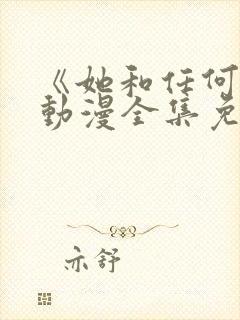 《她和任何
動漫全集免
亦舒